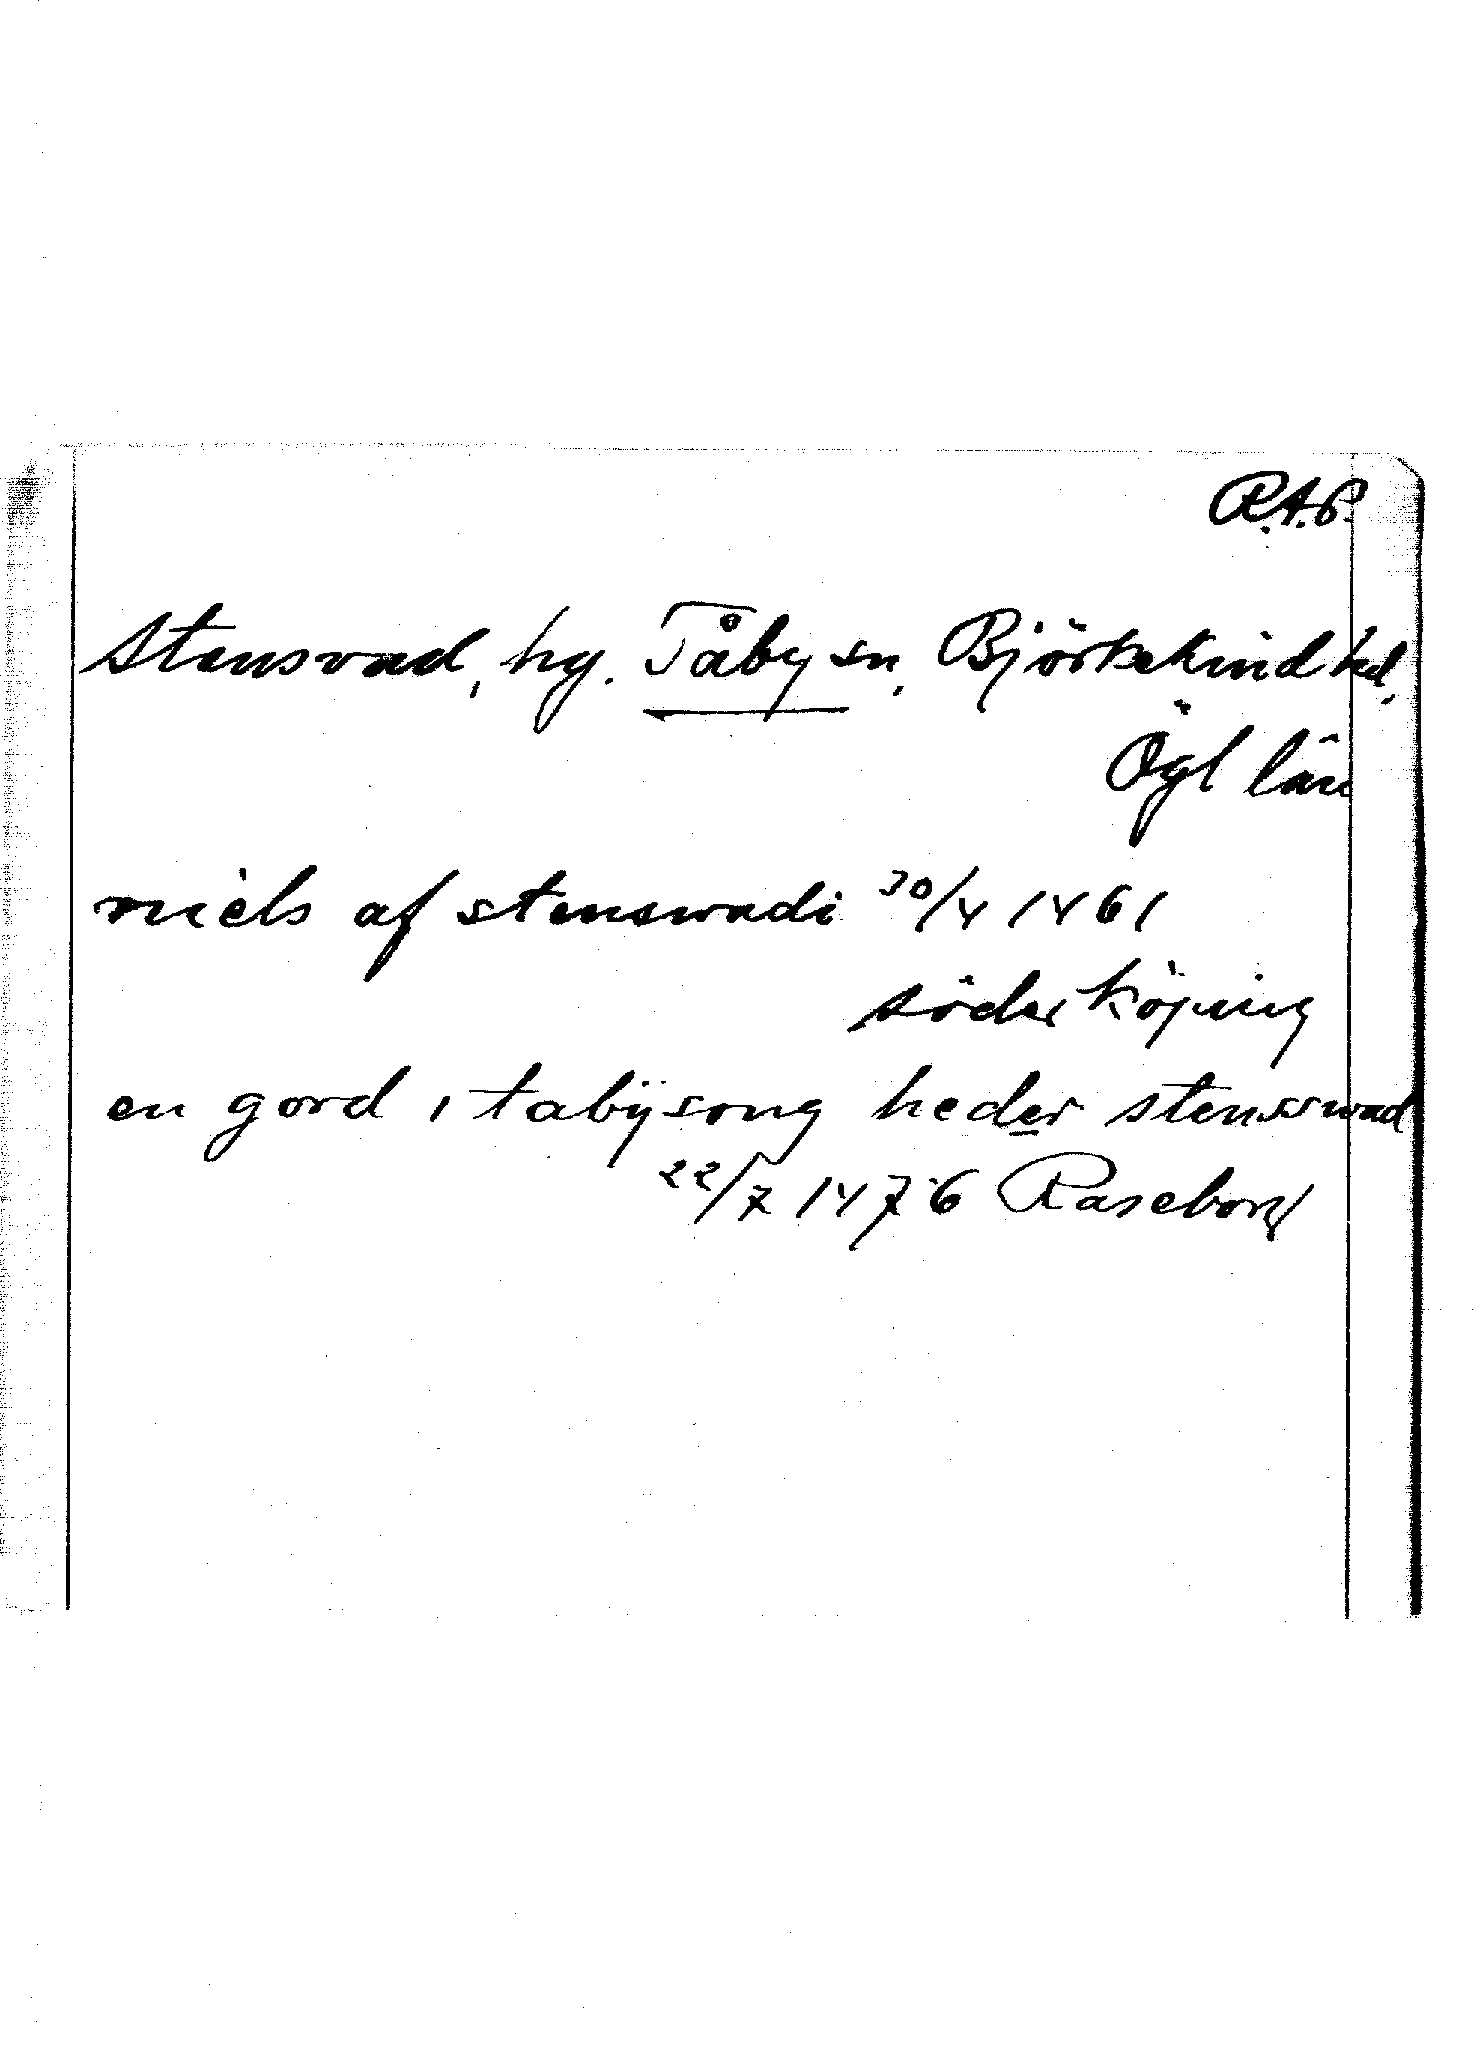 R.A.P.
Stensvad, hg. Tåby sn, Björkekind hd,
Ögl län
niels af stenswadi 30/4 1461
Söderköping
en gord i tabÿsong heder stensswad
22/7 1476 Raseborg